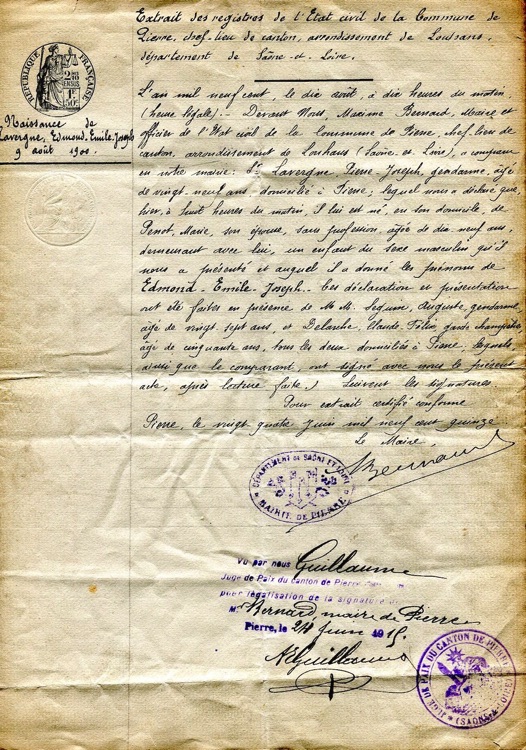 Extrait des registres de l'Etat civil de la Commune de
Pierre, chef-lieu de canton, arrondissement de Louhans,
département de Saône-et-Loire.
RÉPUBLIQUE FRANÇAISE
Naissance de
Lavergne, Edmond-Emile-Joseph
9 août 1900.
L'an mil neuf cent, le dix août, à dix heures du matin
(heure légale). Devant Nous, Maxime Bernard, Maire et
officier de l'Etat civil de la Commune de Pierre, chef-lieu de
canton, arrondissement de Louhans (Saône-et-Loire), a comparu
en notre mairie: Sr Lavergne Pierre-Joseph, gendarme, âgé
de vingt-neuf ans domicilié à Pierre; lequel nous a déclaré que
hier, à huit heures du matin, il lui est né, en son domicile, de
Penot, Marie, son épouse, sans profession, âgée de dix neuf ans,
demeurant avec lui, un enfant du sexe masculin qu'il
nous a présenté et auquel il a donné les prénoms de
Edmond-Emile-Joseph. Ces déclaration et présentation
ont été faites en présence de MM. Seguin, Auguste, gendarme,
âgé de vingt sept ans, et Delarche, Claude-Félix, garde champêtre
âgé de cinquante ans, tous les deux domiciliés à Pierre, lesquels,
ainsi que le comparant, ont signé avec nous le présent
acte, après lecture faite. Suivent les signatures.
Pour extrait certifié conforme
Pierre, le vingt quatre juin mil neuf cent quinze
Le Maire,
Bernard
DÉPARTEMENT DE SAÔNE ET LOIRE
MAIRIE DE PIERRE
Vu par nous Guillaume
Juge de Paix du Canton de Pierre
pour légalisation de la signature de
M. Bernard, maire de Pierre
Pierre, le 24 juin 1915
Guillaume
JUGE DE PAIX DU CANTON DE PIERRE
(SAÔNE &